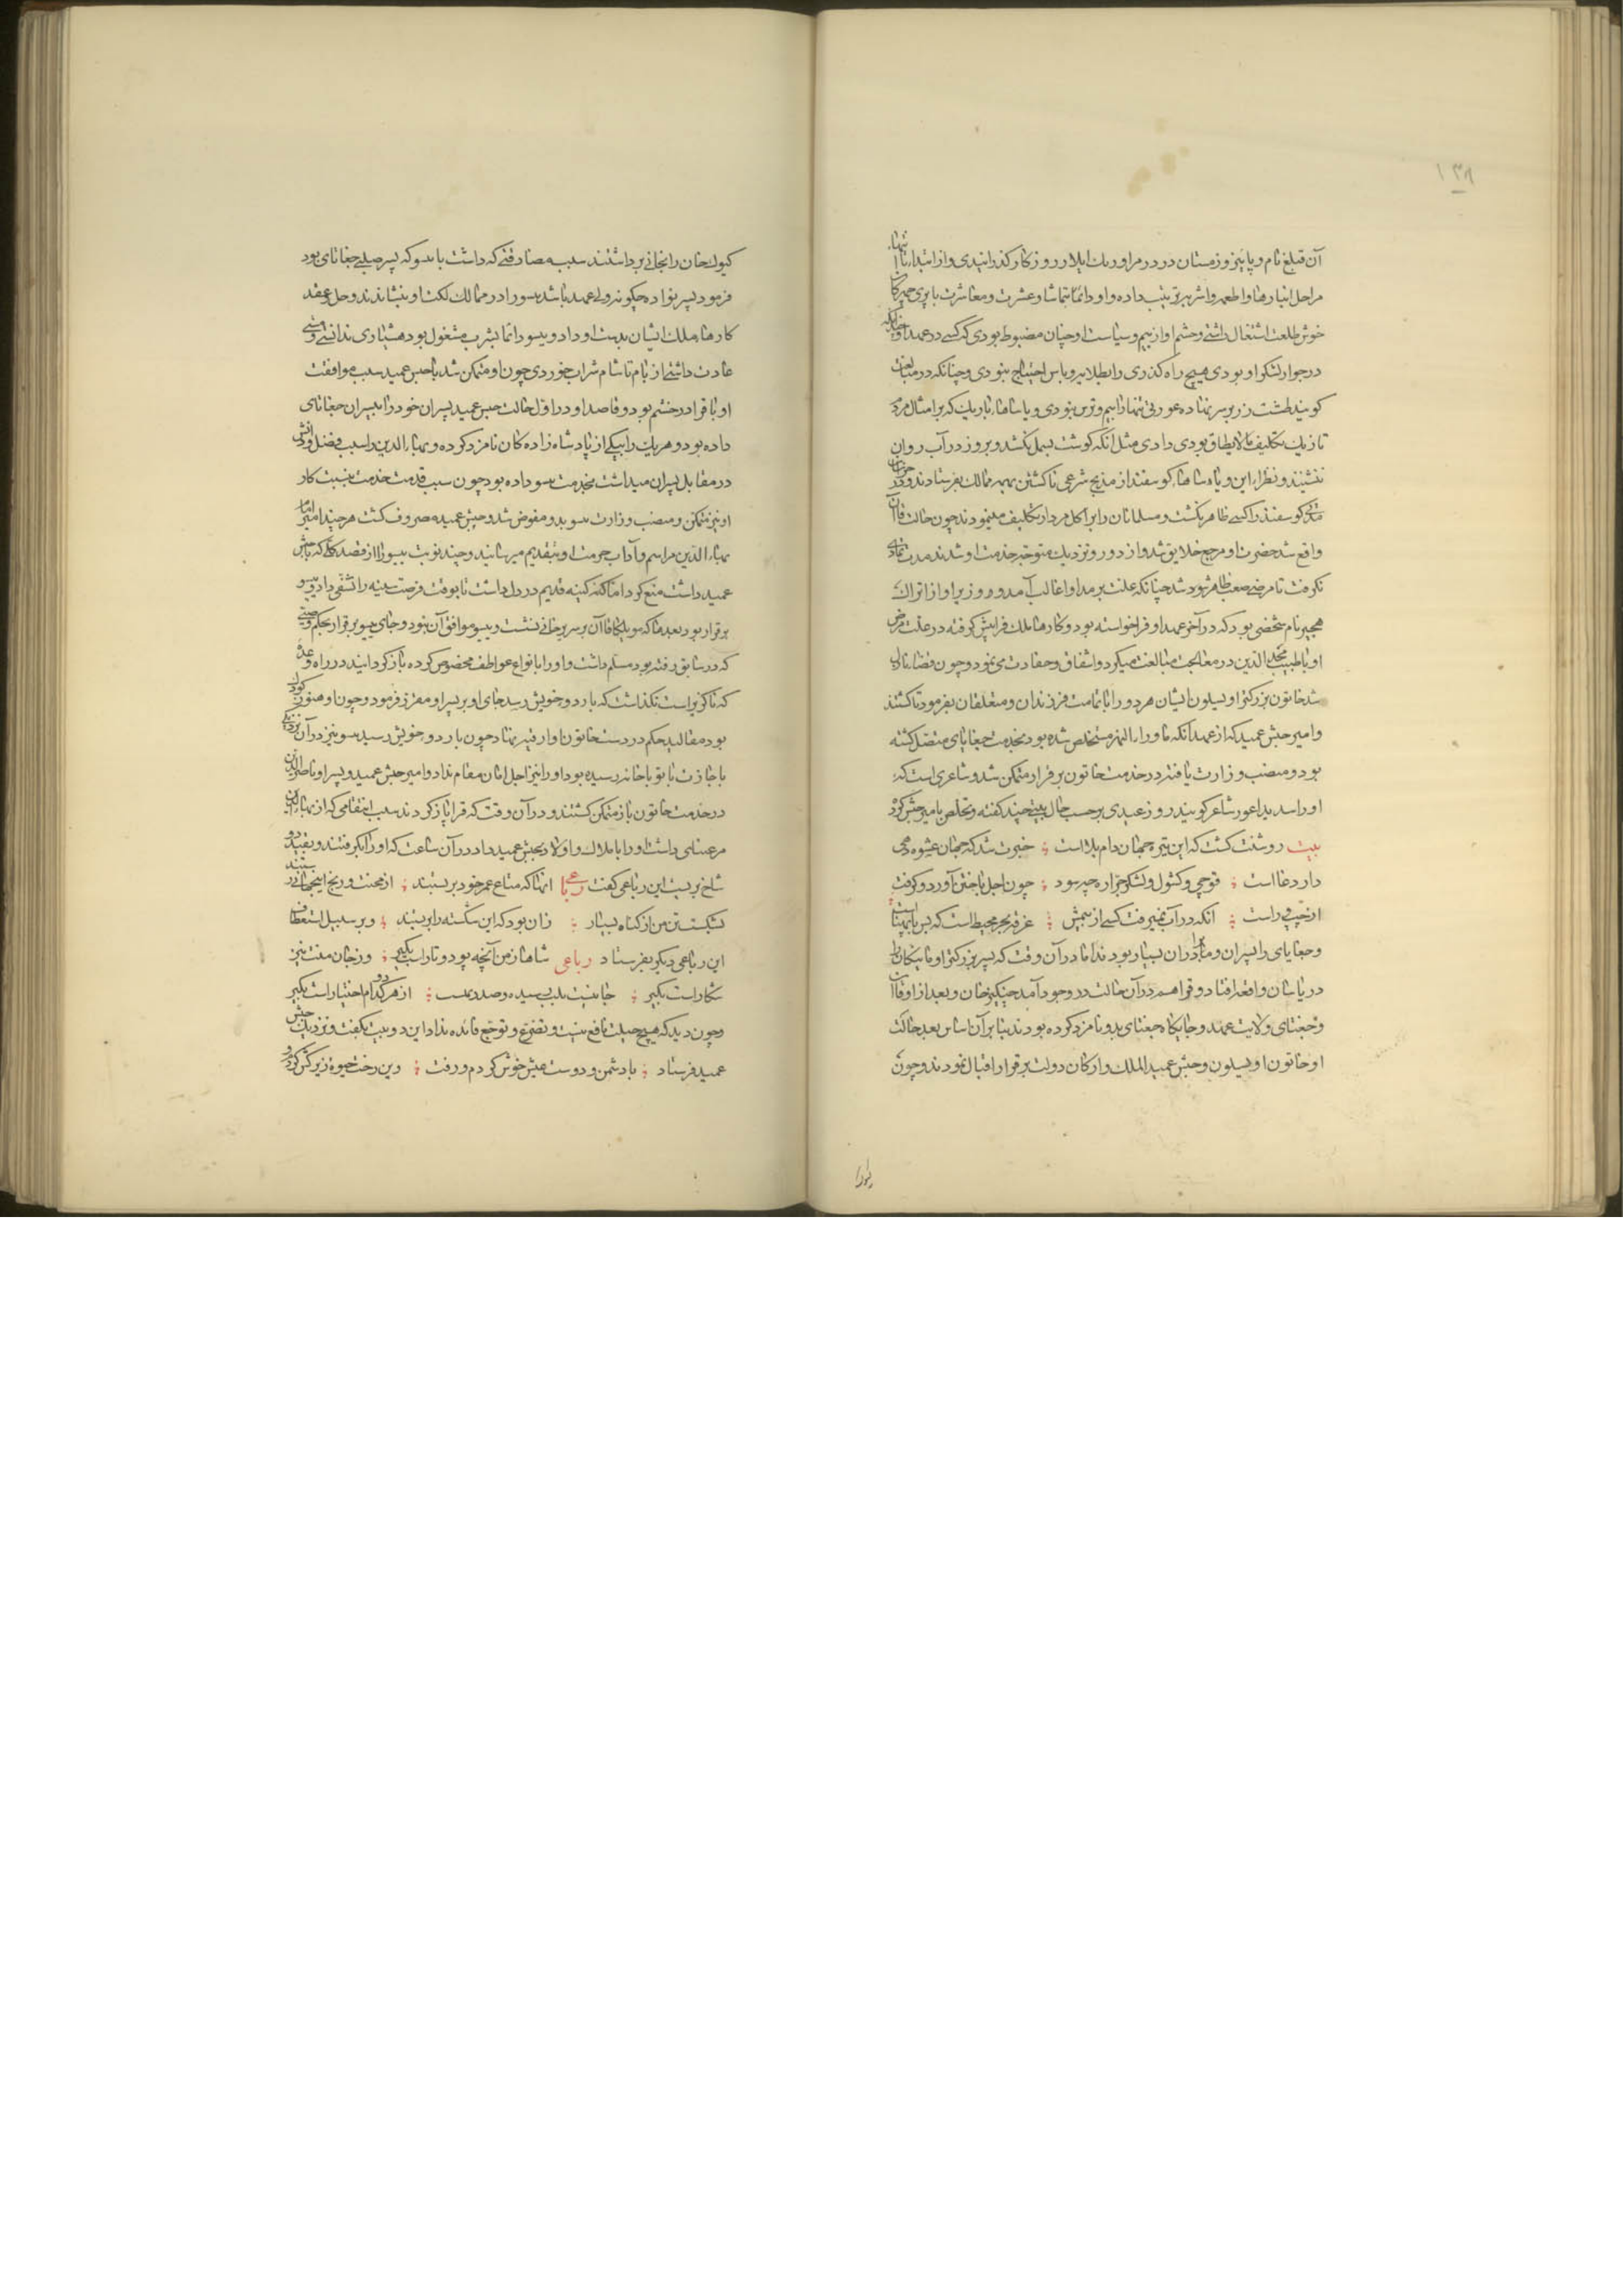 ۱۳۸
آن قتلغ نام و پاییز و زمستان در در مراوریک ایلا در روزگار گذرانیدی و از ابتداء تا انتهاء
مراحل انبارها و اطعمه و اشربه ترتیب داده و او دائما بتماشا و عشرت و معاشرت با پری چهرگان
خوش طلعت اشتغال داشتی و حشم او از بیم و سیاست او چنان مضبوط بودی که کسی در عهد او چنانکه
در جوار لشکر او بودی هیچ راه گذری را بطلایه و پاس احتیاج نبودی و چنانکه در مبالغت
گویند طشت زر بر سر نهاده عورتی تنها را بیم و ترس نبودی و یاساهاء باریک که بر امثال مردم
تازیک تکلیف مالایطاق بودی دادی مثل آنکه گوشت بسمل نکشد و بروز در آب روان
ننشیند و نظراء این و یاساها گوسفند از مذبح شرعی ناکشتن بهمه ممالک بفرستادند و در خراسان
مدتی گوسفند را کسی ظاهر نکشت و مسلمانان را بر اکل مردار تکلیف مینمودند چون حالت قاآن
واقع شد حضرت او مرجع خلایق شد و از دور و نزدیک متوجه خدمت او شدند مدت تمادی
نگرفت تا مرض صعب ظاهر شد چنانکه علت بر مداوا غالب آمد و وزیر او از اتراک
هجیر نام شخصی بود که در آخر عهد او فراخواسته بود و کارهاء ملک فراپیش گرفته در علت مرض
او با طبیب مجد الدین در معالجت مبالغت میکرد و اشفاق و حفاوت می نمود و چون قضا نازل
شد خاتون بزرگتر او یسلون ایشان هر دو را با تمامت فرزندان و متعلقان بفرمود تا کشتند
و امیر حبش عمید که از عهد آنکه ماوراء النهر مستخلص شده بود بخدمت جغاتای متصل گشته
بود و منصب وزارت یافته در خدمت خاتون برقرار متمکن شد و شاعری است که
او را سدید اعور شاعر گویند روز عیدی برحسب حال بیتی چند گفته و تخلص بامیر حبش کرد
بیت روشنت گشت که این تیره جهان دام بلاست ؛ خبرت شد که جهان عشوه دهی
دارد دغا است ؛ قوچی و کشول و لشکر جراره چه سود ؛ چون اجل تاختن آورد و گرفت
از چپ و راست ؛ آنکه در آب نمیرفت کسی از بیمش ؛ غرقه بحر محیط است که بس پایهناست
و جغاتای را پسران و مادران بسیار بودند اما در آن وقت که پسر بزرگتر او ماتیکان را
در بامیان واقعه افتاد و قراهم در آن حالت در وجود آمد چنگیز خان و بعد از او قاآن
و جغتای ولایت عهد و جایگاه جغتای بدو نامزد کرده بودند بنابر آن اساس بعد حالت
او خاتون او یسلون و حبش عمید الملک و ارکان دولت برقرار اقبال نمودند و چون
کیوک خان را بخانی برداشتند سبب مصادقتی که داشت با یسو که پسر صلبی جغاتای بود
فرمود پسرنواده چگونه ولی عهد باشد یسو را در ممالک لکت او بنشاندند و حل و عقد
کارهاء ملک ایشان بدست او داد و یسو دائما بشرب مشغول بود هشیاری ندانستی و مستی
عادت داشتی از بام تا شام شراب خوردی چون او متمکن شد با حبش عمید سبب موافقت
او با قرا در خشم بود و قاصد او در اول حالت حبش عمید پسران خود را با پسران جغاتای
داده بود و هر یک را بیکی از پادشاه زادگان نامزد کرده و بهاء الدین را سبب فضل و دانش
در مقابل پسران میداشت بخدمت یسو داده بود چون سبب قدمت خدمت بنسبت کار
او نیز متمکن و منصب وزارت یسو بدو مفوض شد و حبش عمید مصروف گشت هر چند امیر امام
بهاء الدین مراسم و آداب حرمت او بتقدیم میرسانید و چند نوبت یسو را از قصد کلی که با حبش
عمید داشت منع کرد اما کنه کینه قدیم در دل داشت تا بوقت فرصت سینه را تشفی داد و یسو
برقرار بود بعد ما که مونککا قاآن بر سریر خانی نشست و یسو موافق آن نبود و جای یسو برقرار بحکم وصیتی
که در سابق رفته بود مسلم داشت و او را بانواع عواطف مخصوص کرده بازگردانید در راه وعده
که ناگزیر است نگذاشت که باردو خویش رسد جای او بر پسر او مقرر فرمود و چون او هنوز کودک
بود مقالید حکم در دست خاتون او ارقنه نهاد چون باردو خویش رسید یسو نیز در آن نزدیکی
باجازت باتو با خانه رسیده بود او را نیز اجل امان مقام نداد و امیر حبش عمید و پسر او ناصر الدین
در خدمت خاتون باز متمکن گشتند و در آن وقت که قرا باز کردند سبب انتقامی که از بهاء الدین
مرغینانی داشت او را با ملاک و اولاد بحبش عمید داد در آن ساعت که او را بگرفتند و بقید دو
شاخ بر بست این رباعی گفت رباعی آنها که متاع عمر خود بر بستند ؛ از محنت و رنج اینجهانی رستند
بشکست تن من از گناه بسیار ؛ زان بود که این شکسته را بربستند ؛ و بر سبیل استعطاف
این رباعی دیگر بفرستاد رباعی شاها ز من آنچه پود و تار است بگیر ؛ وز جان منت نیز
شکار است بگیر ؛ جانیست بلب رسیده و صد دربست ؛ از هر دو کدام اختیار است بگیر
و چون دید که هیچ حیلت نافع نیست و تضرع و توجع فائده نداد این دو بیت بگفت و نزدیک حبش
عمید فرستاد ؛ با دشمن و دوست عیش خوش کردم و رفت ؛ وین رخت حیوة زیر کش کردم و